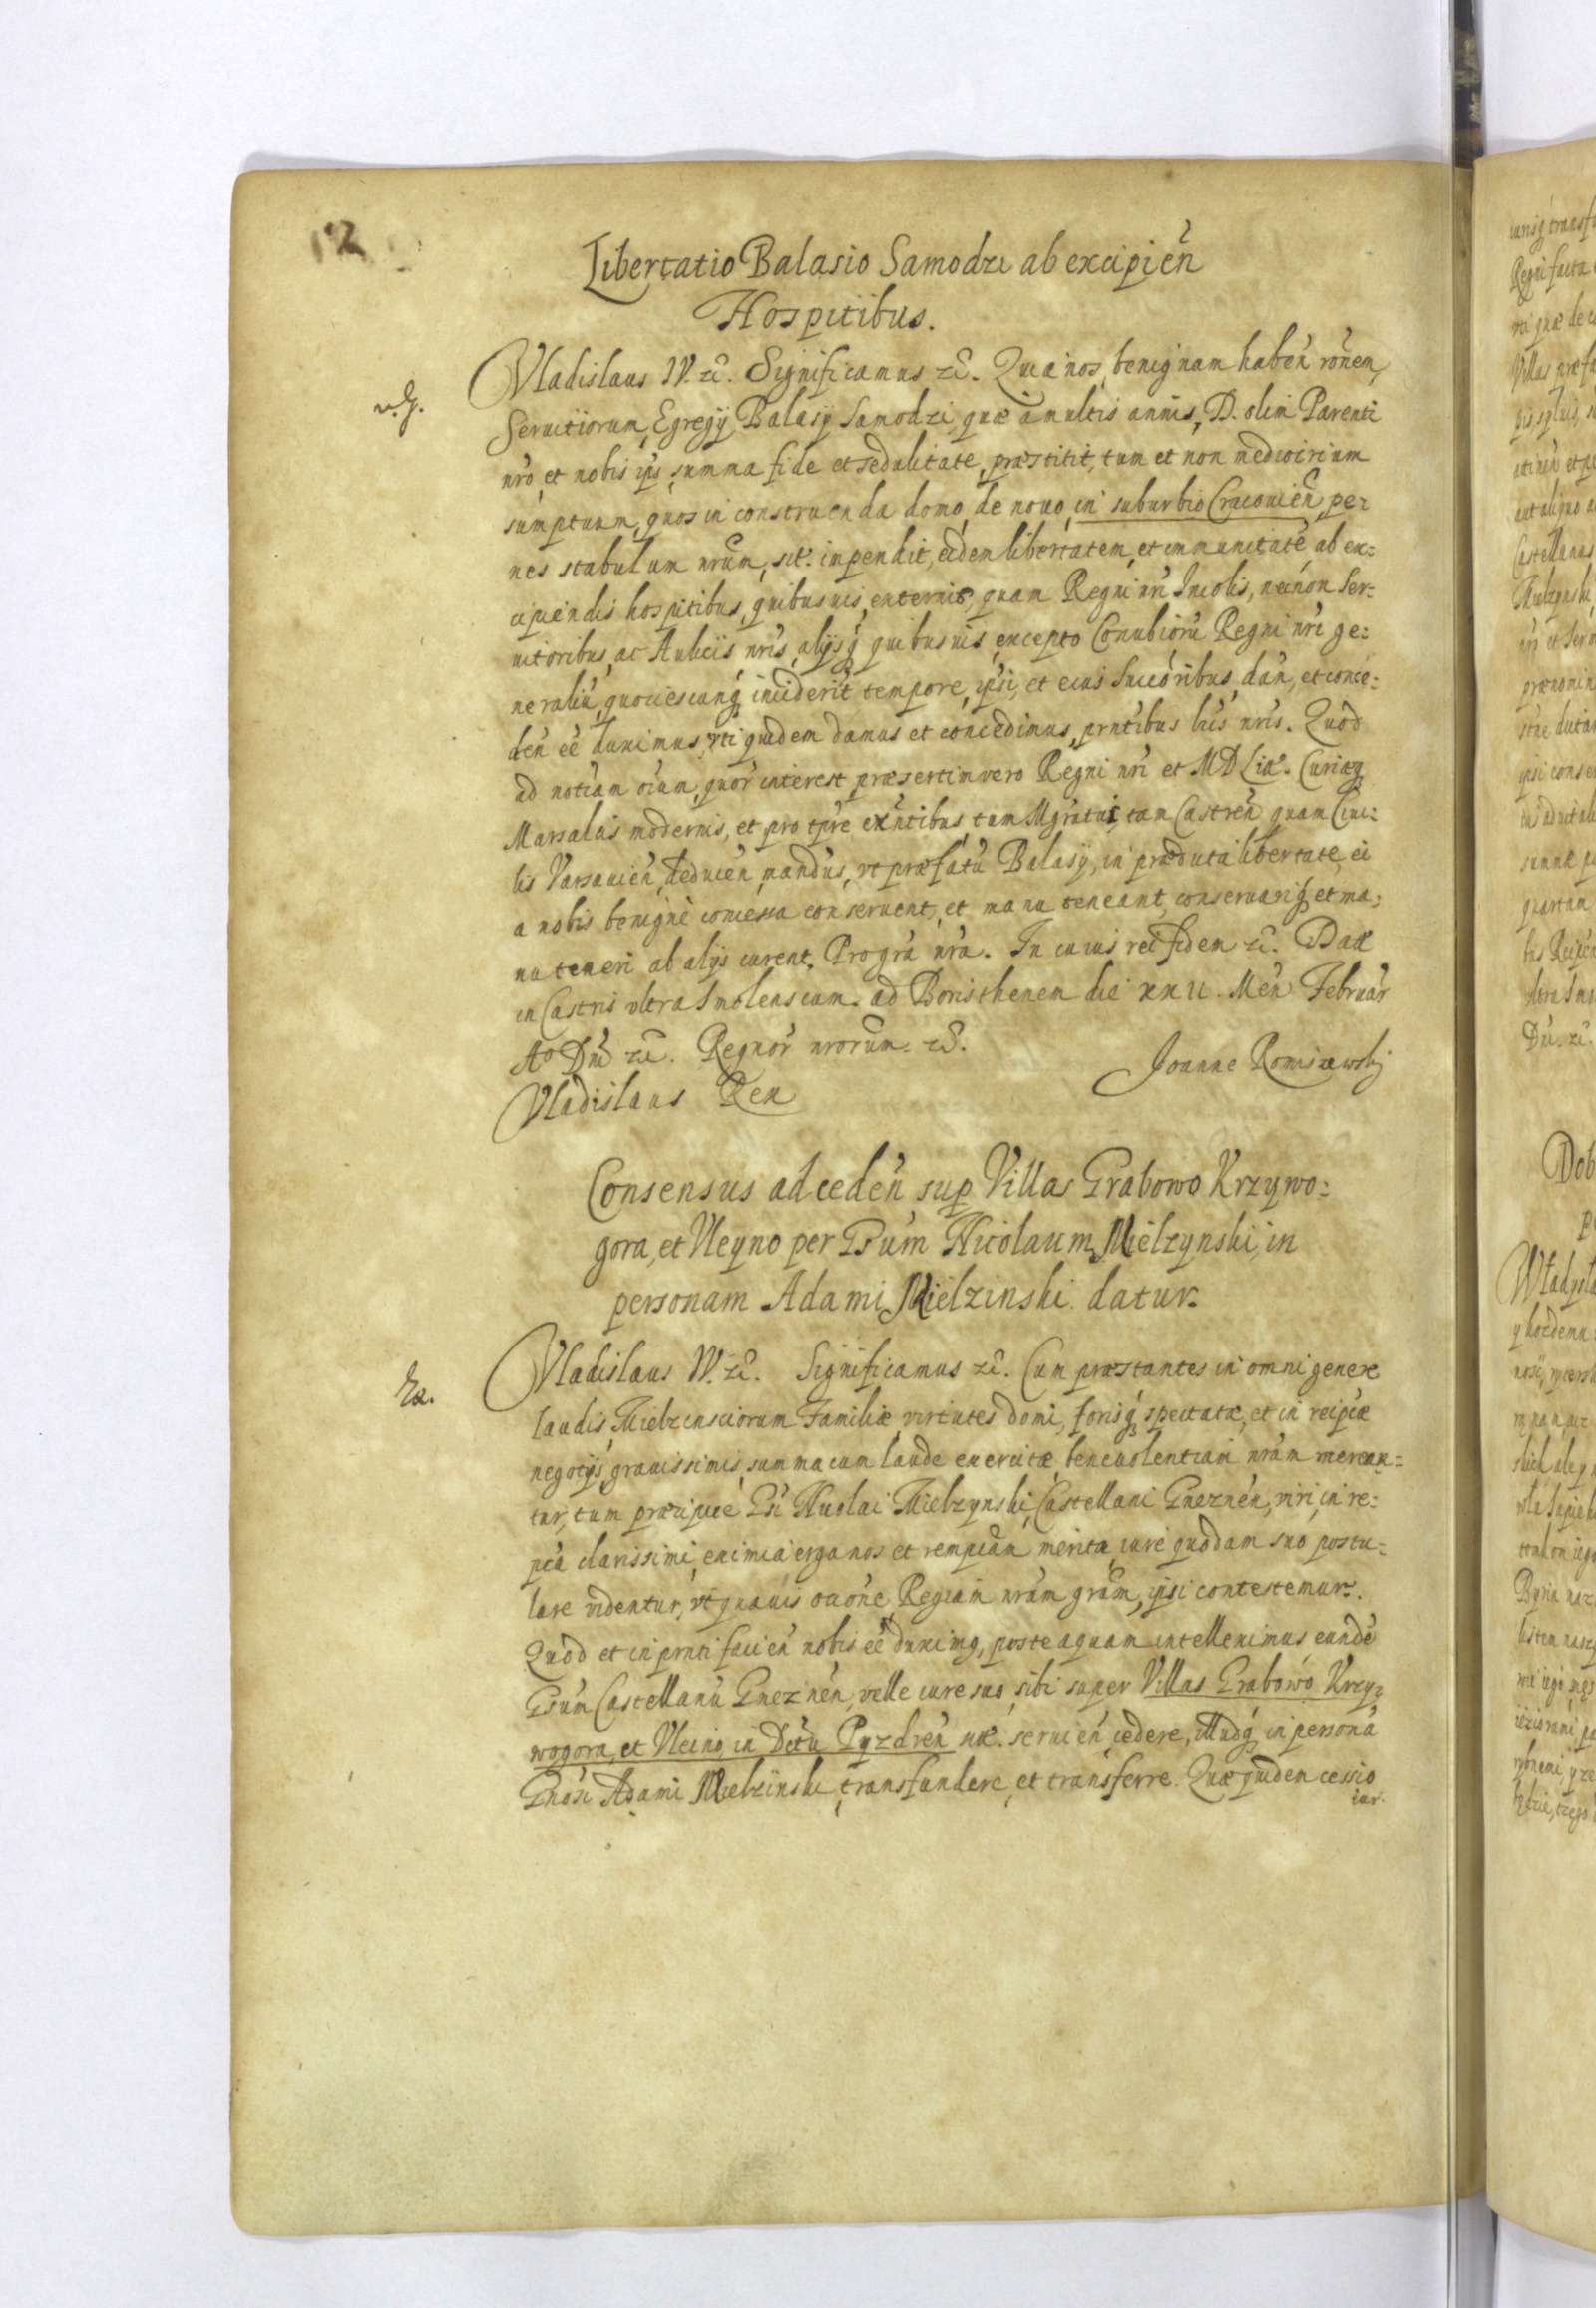 12
Libertatio Balasio Samodzi ab excipień
Hospitibus.
Vladislaus IV. zc. Significamus zc. Quia nos, benignam habeń rońem,
Seruitiorum, Egregÿ Balasÿ Samodzi, quæ à multis annis, D. olim Parenti
nro, et nobis ips, summa fide et sedulitate, præstitit, tum et non mediocrium
sumptuum, quos in construenda domo, de nouo, in suburbio Cracouień, pe-
nes stabulum nrum, sit. inpendit, eidem libertatem, et immunitatē ab ex-
cipiendis hospitibus, quibusuis, externis, quam Regni nri Incolis, necnon Ser-
uitoribus, ac Aulicis nris, alÿsq quibusuis, excepto Conubiorū Regni nri ge-
neraliū, quotiescunq inciderit tempore, ipsi, et eius Succoribus dań, et conce-
deń eē duximus, vti quidem damus et concedimus, prntibus lris nris. Quod
ad notiam oium, quor interest præsertim vero Regni nri et MDLiæ. Curiæq
Marsalcis modernis, et pro tpre exntibus, tum Mgratui, tam Castreń quam Ciui-
lis Varsauień, deducień, mandus, vt præfatū Balasÿ, in præducta libertate, ei
a nobis benignè concessa conseruent, et manu teneant, conseruariq et ma-
nu teneri ab alÿs curent. Pro gra nra. In cuius rei fidem zc. Datæ
in Castris vltra Smolenscum. ad Boristhenem die XXII. Meń Februar
Ao Dni zc. Regnor nrorum. zc.
Joanne Romiszewskj
Vladislaus Rex
Consensus ad cedeń sup Villas Grabowo Krzywo-
gora, et Vleyno per Gsum Nicolaum Mielzynski, in
personam Adami Mielzinski. datur.
Vladislaus IV. zc. Significamus zc. Cum præstantes in omni genere
laudis, Mielzinsciorum Familiæ virtutes domi, forisq spectatæ, et in reipcæ
negotÿs, grauissimis, summa cum laude exercitæ, beneuolentiam nram merean-
tur, tum præcipuè Gsi Nicolai Mielzynski, Castellani Gnezneń, viri, in re-
pca clarissimi, eximia erga nos et rempcam merita, iure quodam suo postu-
lare videntur, vt quauis ocone, Regiam nram gram, ipsi contestemur.
Quod et in prnti facień nobis eē duximq, posteaquam intelleximus eundē
Gsum Castellanū Gnezneń, velle iure suo, sibi super Villas Grabowo Krzy-
wogora, et Vleino, in Dctu Pyzdreń sitæ. seruień, cedere, illudq in personā
Gnosi Adami Mielzinski, transfundere, et transferre. Quæquidem cessio
iur.